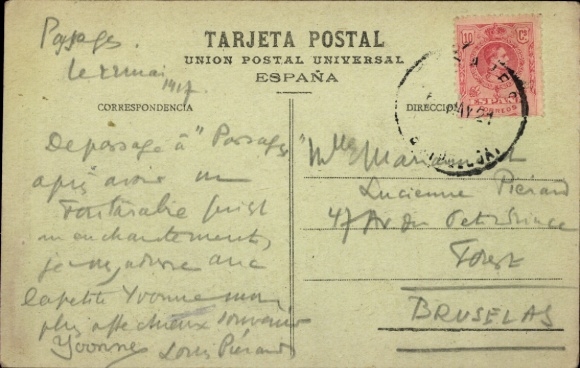 Passages.
le 22 mai
1917.
TARJETA POSTAL
UNION POSTAL UNIVERSAL
ESPAÑA
CORRESPONDENCIA
De passage à "Passages
après avoir vu
Fontarabie qui est
un enchantement,
je vous adresse avec
la petite Yvonne mon
plus affectueux souvenir
Yvonne Louis Piérard
DIRECCIÓN
10 Cs
ESPAÑA
CORREOS
Mlles et
Lucienne Piérard
47 Av du Petit Prince
Forest
BRUSELAS